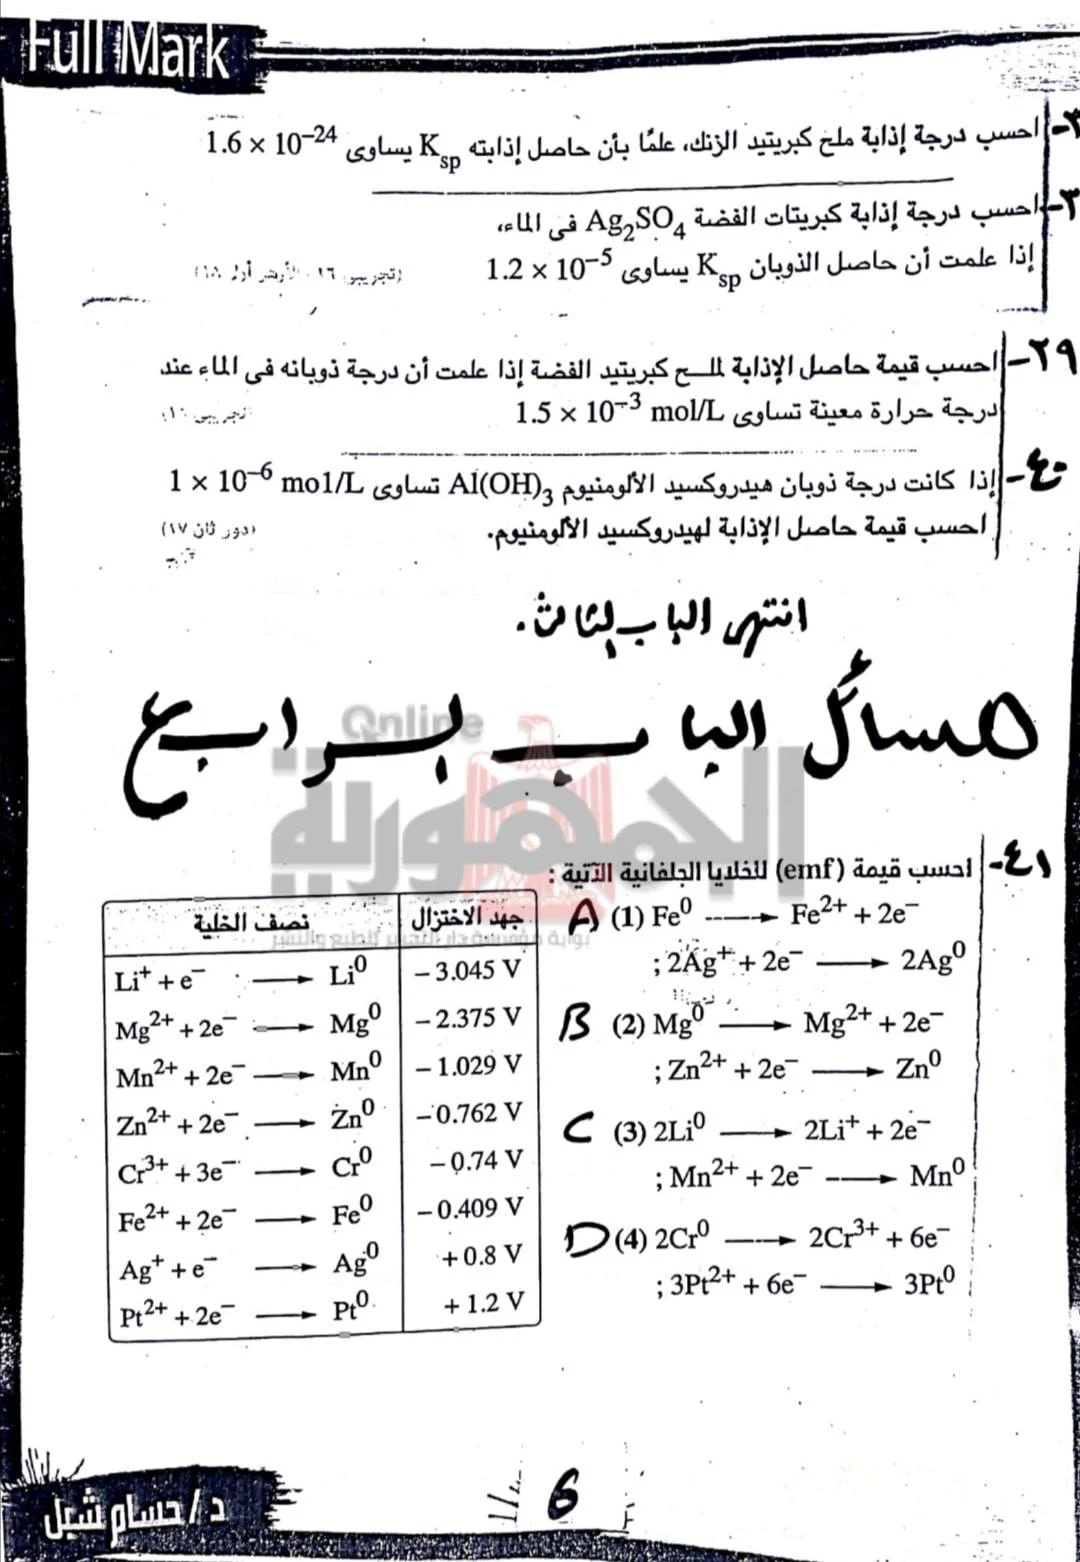 Full Mark
احسب درجة إذابة ملح كبريتيد الزنك، علمًا بأن حاصل إذابته Ksp يساوى 1.6 × 10–24
احسب درجة إذابة كبريتات الفضة Ag2SO4 فى الماء،
إذا علمت أن حاصل الذوبان Ksp يساوى 1.2 × 10–5
٢٩- احسب قيمة حاصل الإذابة لملح كبريتيد الفضة إذا علمت أن درجة ذوبانه فى الماء عند
درجة حرارة معينة تساوى 1.5 × 10–3 mol/L
٤٠- إذا كانت درجة ذوبان هيدروكسيد الألومنيوم Al(OH)3 تساوى 1 × 10–6 mol/L
احسب قيمة حاصل الإذابة لهيدروكسيد الألومنيوم. (دور ثان ١٧)
انتهى الباب الثالث.
مسائل الباب الرابع
Online
الجمهورية
٤١- احسب قيمة (emf) للخلايا الجلفانية الآتية :
A (1) Fe0 → Fe2+ + 2e–
; 2Ag+ + 2e– → 2Ag0
B (2) Mg0 → Mg2+ + 2e–
; Zn2+ + 2e– → Zn0
C (3) 2Li0 → 2Li+ + 2e–
; Mn2+ + 2e– → Mn0
D (4) 2Cr0 → 2Cr3+ + 6e–
; 3Pt2+ + 6e– → 3Pt0
نصف الخلية جهد الاختزال
Li+ + e– → Li0 – 3.045 V
Mg2+ + 2e– → Mg0 – 2.375 V
Mn2+ + 2e– → Mn0 – 1.029 V
Zn2+ + 2e– → Zn0 –0.762 V
Cr3+ + 3e– → Cr0 – 0.74 V
Fe2+ + 2e– → Fe0 – 0.409 V
Ag+ + e– → Ag0 + 0.8 V
Pt2+ + 2e– → Pt0 + 1.2 V
6
د/ حسام شبل